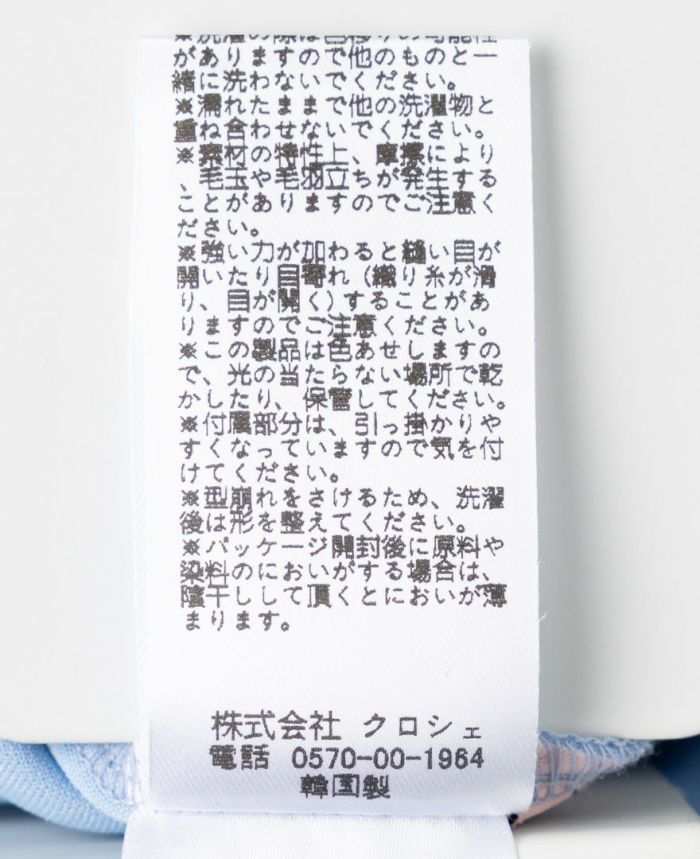 ※洗濯の際は色移りの可能性
がありますので他のものと一
緒に洗わないでください。
※濡れたままで他の洗濯物と
重ね合わせないでください。
※素材の特性上、摩擦により
、毛玉や毛羽立ちが発生する
ことがありますのでご注意く
ださい。
※強い力が加わると縫い目が
開いたり目寄れ（織り糸が滑
り、目が開く）することがあ
りますのでご注意ください。
※この製品は色あせしますの
で、光の当たらない場所で乾
かしたり、保管してください。
※付属部分は、引っ掛かりや
すくなっていますので気を付
けてください。
※型崩れをさけるため、洗濯
後は形を整えてください。
※パッケージ開封後に原料や
染料のにおいがする場合は、
陰干しして頂くとにおいが薄
まります。
株式会社 クロシェ
電話 0570-00-1964
韓国製